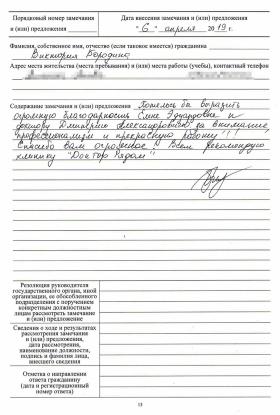 Порядковый номер замечания
и (или) предложения
Дата внесения замечания и (или) предложения
"6" апреля 2019 г.
Фамилия, собственное имя, отчество (если таковое имеется) гражданина
Виктория Бородина
Адрес места жительства (места пребывания) и (или) места работы (учебы), контактный телефон
Содержание замечания и (или) предложения Хотелось бы выразить
огромную благодарность Елене Эдуардовне и
Дмитрию Александровичу за внимание,
профессионализм и прекрасную работу!!!
Спасибо вам огромное! Всем рекомендую
клинику "Доктор Рядом"
Резолюция руководителя
государственного органа, иной
организации, ее обособленного
подразделения с поручением
конкретным должностным
лицам рассмотреть замечание
и (или) предложение
Сведения о ходе и результатах
рассмотрения замечания
и (или) предложения,
дата рассмотрения,
наименование должности,
подпись и фамилия лица,
внесшего сведения
Отметка о направлении
ответа гражданину
(дата и регистрационный
номер ответа)